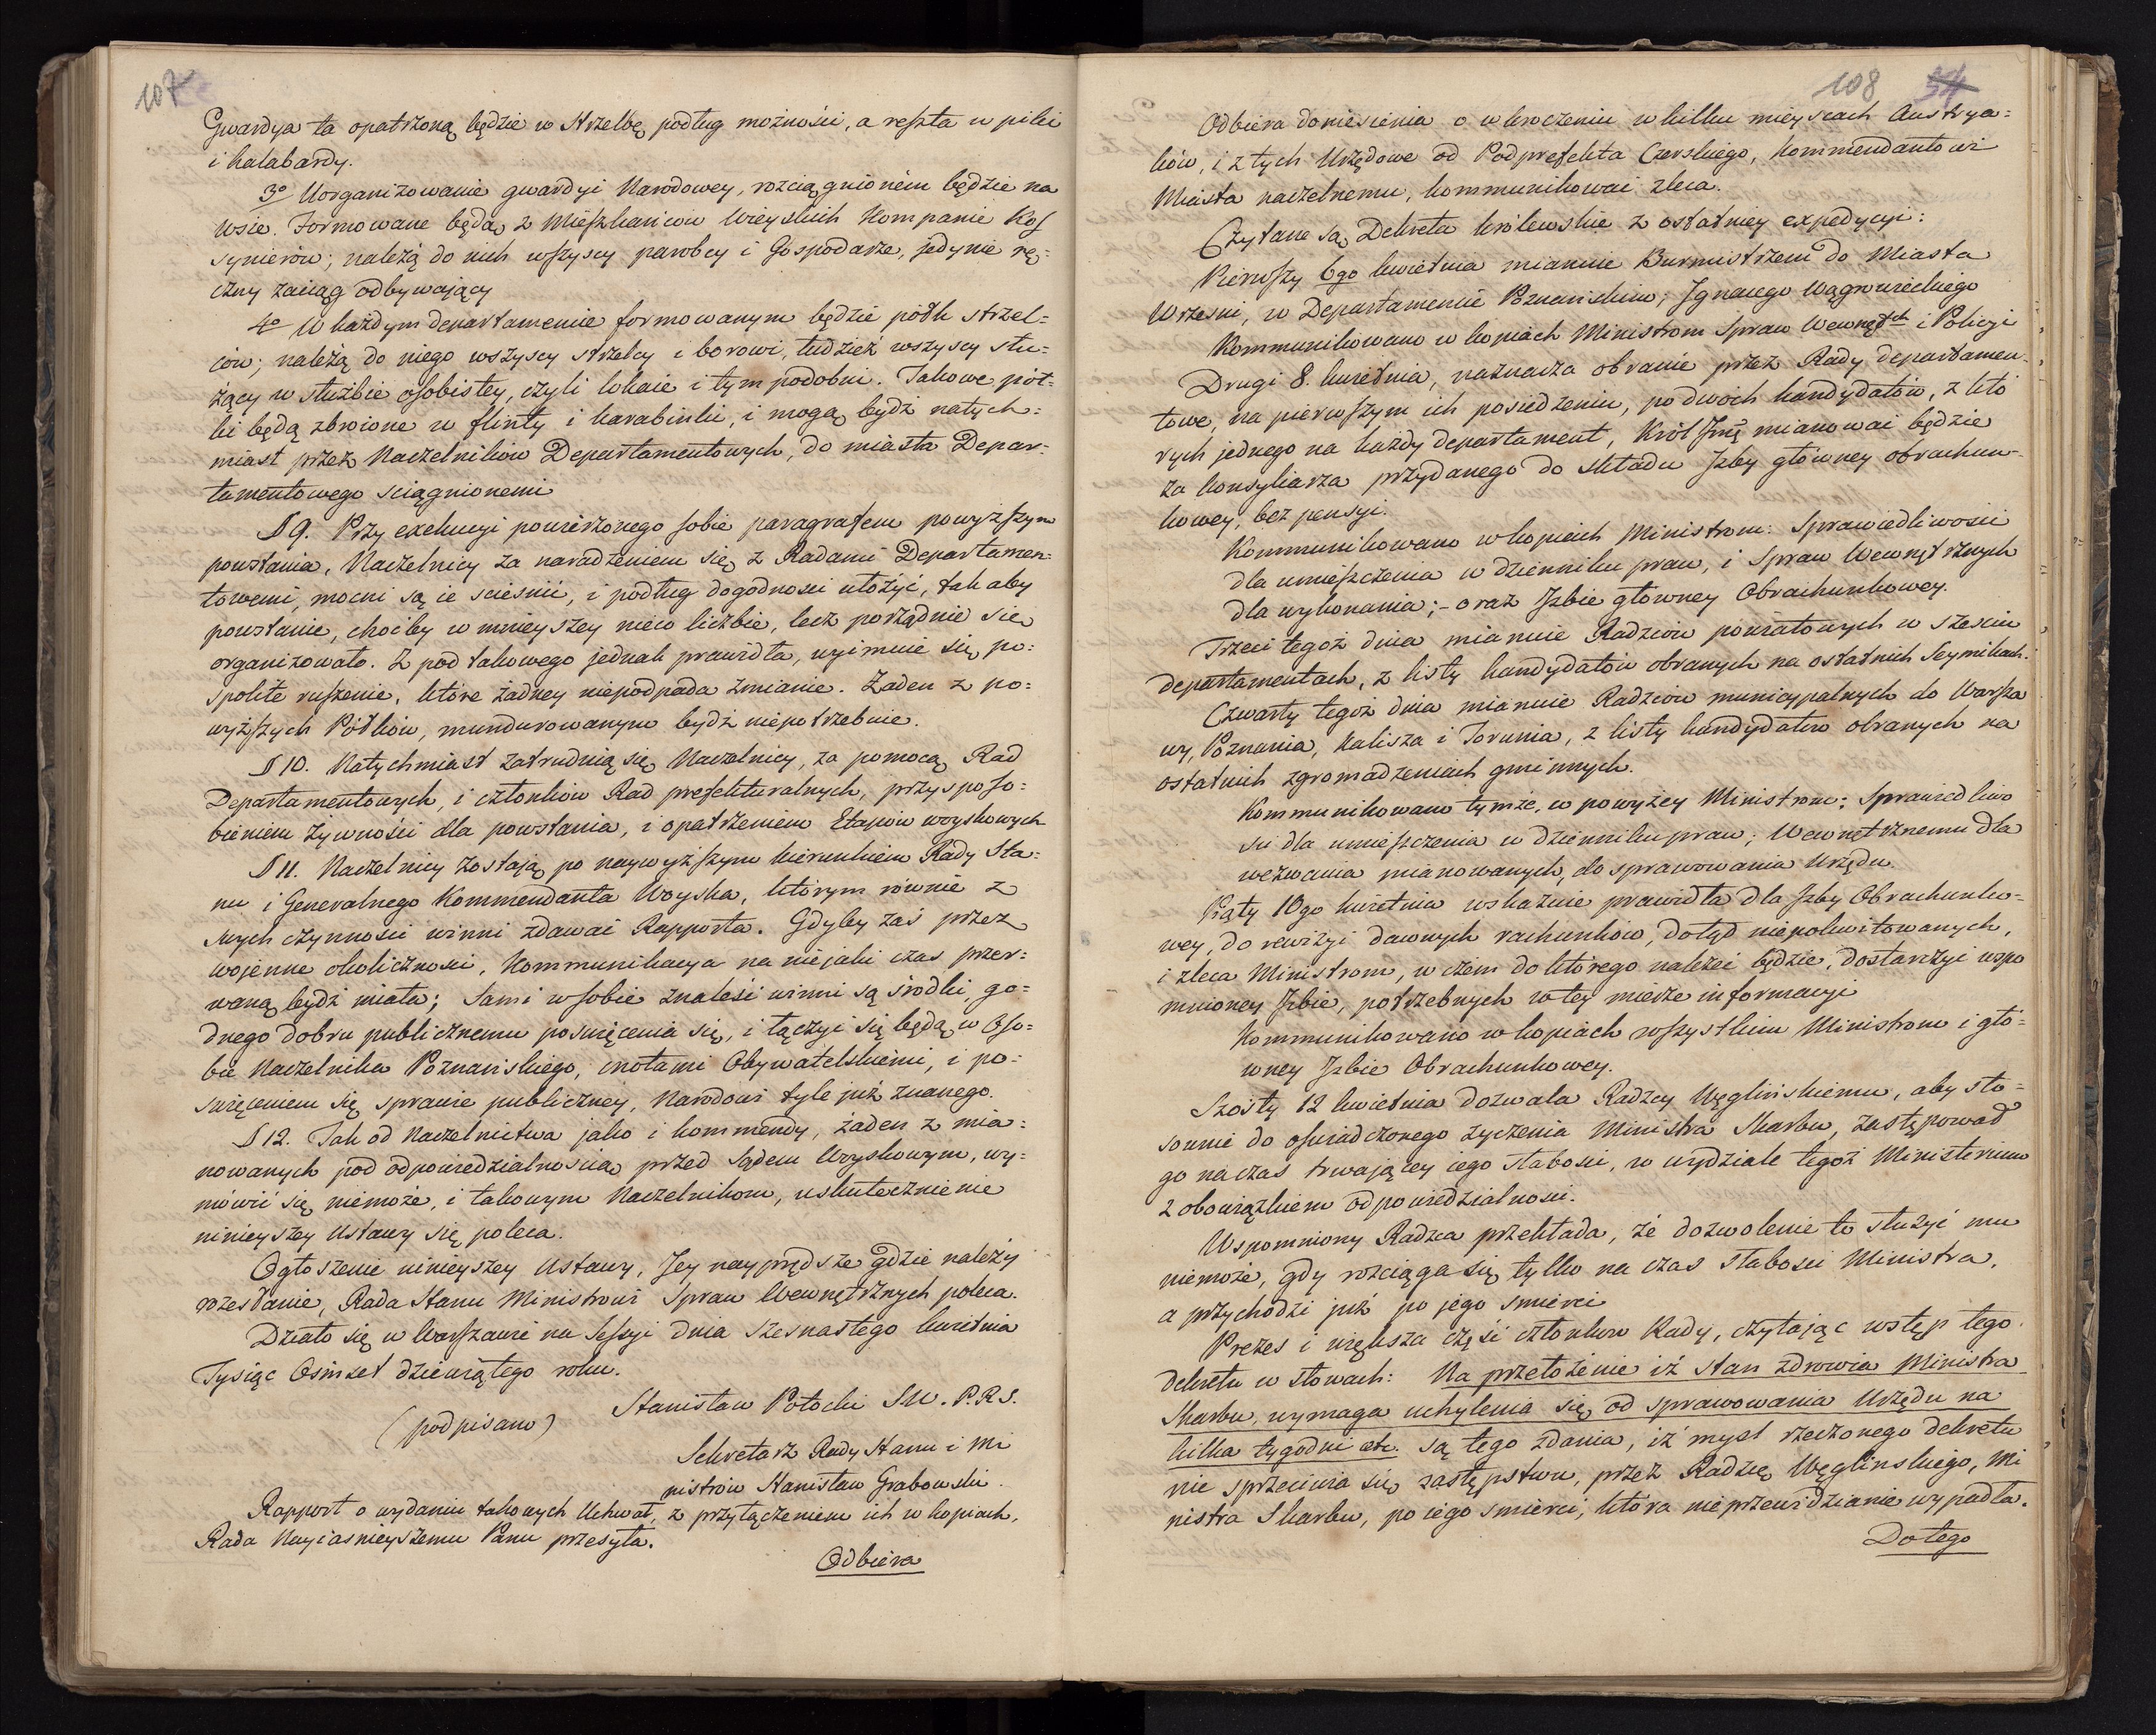 107
Gwardya ta opatrzoną będzie w Strzelbę podług możności, a reszta w piki
i halabardy.
3o Uorganizowanie gwardyi Narodowey, rozciągnionem będzie na
wsie. Formowane będą z Mieszkańców Wieyskich Kompanie Kos
synierów; należą do nich wszyscy parobcy i Gospodarze, jedynie rę=
czny zaciąg odbywający
4o W każdym departamencie formowanym będzie półk strzel=
ców; należą do niego wszyscy strzelcy i borowi, tudzież wszyscy słu=
żący w służbie osobistey, czyli lokaie i tym podobni. Takowe pół=
ki będą zbroione w flinty i karabinki, i mogą bydź natych=
miast przez Naczelników Departamentowych, do miasta Depar=
tamentowego sciągnionemi
§ 9. Przy exekucyi powierzonego sobie paragrafem powyższym
powstania, Naczelnicy za naradzeniem się z Radami Departamen=
towemi, mocni są ie scieśnić, i podług dogodności ułożyć, tak aby
powstanie, choćby w mnieyszey nieco liczbie, lecz porządnie się
organizowało. Z pod takowego jednak prawidła, wyimuie się po=
spolite ruszenie, które żadney niepodpada zmianie. Żaden z po=
wyższych Półków, mundurowanym bydź niepotrzebuie.
§ 10. Natychmiast zatrudnią się Naczelnicy, za pomocą Rad
Departamentowych, i członków Rad prefekturalnych, przysposo=
bieniem żywności dla powstania, i opatrzeniem Etapów woyskowych
§ 11. Naczelnicy zostają po naywyższym kierunkiem Rady Sta=
nu i Generalnego Kommendanta Woyska, którym równie z
swych czynności winni zdawać Rapporta. Gdyby zaś przez
wojenne okoliczności, Kommunikacya na niejaki czas przer=
waną bydź miała; Sami w sobie znaleść winni są środki go=
dnego dobru publicznemu poswięcenia się, i łączyć się będą w Oso=
bie Naczelnika Poznańskiego, cnotami Obywatelskiemi, i po=
swięceniem się sprawie publiczney, Narodowi tyle już znanego.
§ 12. Tak od Naczelnictwa jako i kommendy, żaden z mia=
nowanych pod odpowiedzialnością przed Sądem Woyskowym, wy=
mówić się niemoże, i takowym Naczelnikom, uskutecznienie
ninieyszey Ustawy się poleca.
Ogłoszenie ninieyszey Ustawy, Jey nayprędsze gdzie należy
rozesłanie, Rada Stanu Ministrowi Spraw Wewnętrznych poleca.
Działo się w Warszawie na Sessyi dnia szesnastego kwietnia
Tysiąc Osimset dziewiątego roku.
(podpisano) Stanisław Potocki S.W. P.R.S.
Sekretarz Rady Stanu i Mi
nistrów Stanisław Grabowski.
Rapport o wydaniu takowych Uchwał, z przyłączeniem ich w kopiach,
Rada Nayiasnieyszemu Panu przesyła.
Odbiera
108 54
Odbiera doniesienia o wkroczeniu w kilku mieyscach Austrya=
ków, i z tych Urzędowe od Podprefekta Czerskiego, Kommendantowi
Miasta naczelnemu, kommunikować zleca.
Czytane są Dekreta królewskie z ostatniey expedycyi:
Pierwszy 6go kwietnia mianuie Burmistrzem do Miasta
Wrześni, w Departamencie Poznańskim; Ignacego Wągrowieckiego
Kommunikowano w kopiach Ministrom Spraw Wewnętch i Policyi
Drugi 8. kwietnia, naznacza obranie przez Rady departamen=
towe, na pierwszym ich posiedzeniu, po dwóch kandydatów, z któ
rych jednego na każdy departament, Król Jmć mianować będzie
za konsyliarza przydanego do składu Izby główney obrachun=
kowey, bez pensyi.
Kommunikowano w kopiach Ministrom: Sprawiedliwości
dla umieszczenia w dzienniku praw, i Spraw Wewnętrznych
dla wykonania; - oraz Izbie główney Obrachunkowey.
Trzeci tegoż dnia mianuie Radzców powiatowych w sześciu
departamentach, z listy kandydatów obranych na ostatnich Seymikach.
Czwarty tegoż dnia mianuie Radzców municypalnych do Warsza
wy, Poznania, Kalisza i Torunia, z listy kandydatów obranych na
ostatnich zgromadzeniach gminnych.
Kommunikowano tymże, co powyżey Ministrom; Sprawiedliwo
ści dla umieszczenia w dzienniku praw; Wewnętrznemu dla
wezwania mianowanych, do sprawowania Urzędu.
Piąty 10go kwietnia wskazuie prawidła dla Izby Obrachunko=
wey, do rewizyi dawnych rachunków, dotąd niepokwitowanych,
i zleca Ministrom, w czem do którego należeć będzie, dostarczyć wspo
mnioney Izbie, potrzebnych w tey mierze informacyi
Kommunikowano w kopiach wszystkim Ministrom i głó=
wney Izbie Obrachunkowey.
Szósty 12 kwietnia dozwala Radzcy Węglińskiemu, aby sto=
sownie do oświadczonego życzenia Ministra Skarbu, zastępował
go na czas trwającey iego słabości, w wydziale tegoż Ministerium
z obowiązkiem odpowiedzialności.
Wspomniony Radzca przekłada, że dozwolenie to służyć mu
niemoże, gdy rozciąga się tylko na czas słabości Ministra,
a przychodzi już po jego śmierci
Prezes i większa część członków Rady, czytając wstęp tego
dekretu w słowach: Na przełożenie iż stan zdrowia Ministra
Skarbu, wymaga uchylenia się od sprawowania Urzędu na
kilka tygodni etc. są tego zdania, iż mysl rzeczonego dekretu
nie sprzeciwia się zastępstwu, przez Radzcę Węglinskiego, Mi
nistra Skarbu, po iego smierci, która nieprzewidzianie wypadła.
Do tego